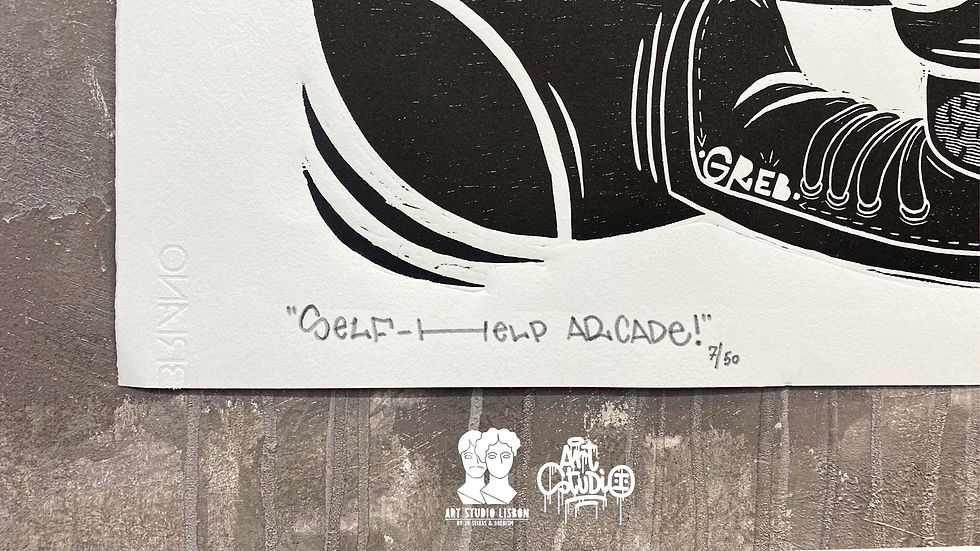 ·GREB.
"SELF-HELP ARCADE!"
7/50
Art
Studio
ART STUDIO LISBON